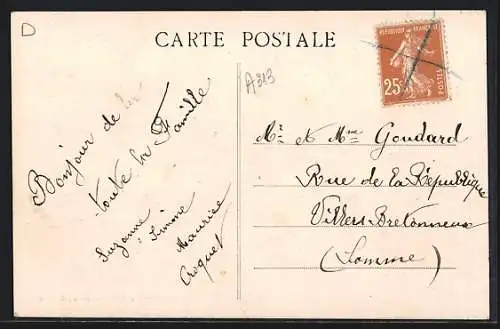 D
CARTE POSTALE
A313
REPUBLIQUE FRANÇAISE
25c
POSTES
Bonjour de
toute la Famille
Suzanne
Simone
Maurice
Croquet
Mr et Mme Goudard
Rue de la République
Villers Bretonneux
(Somme)